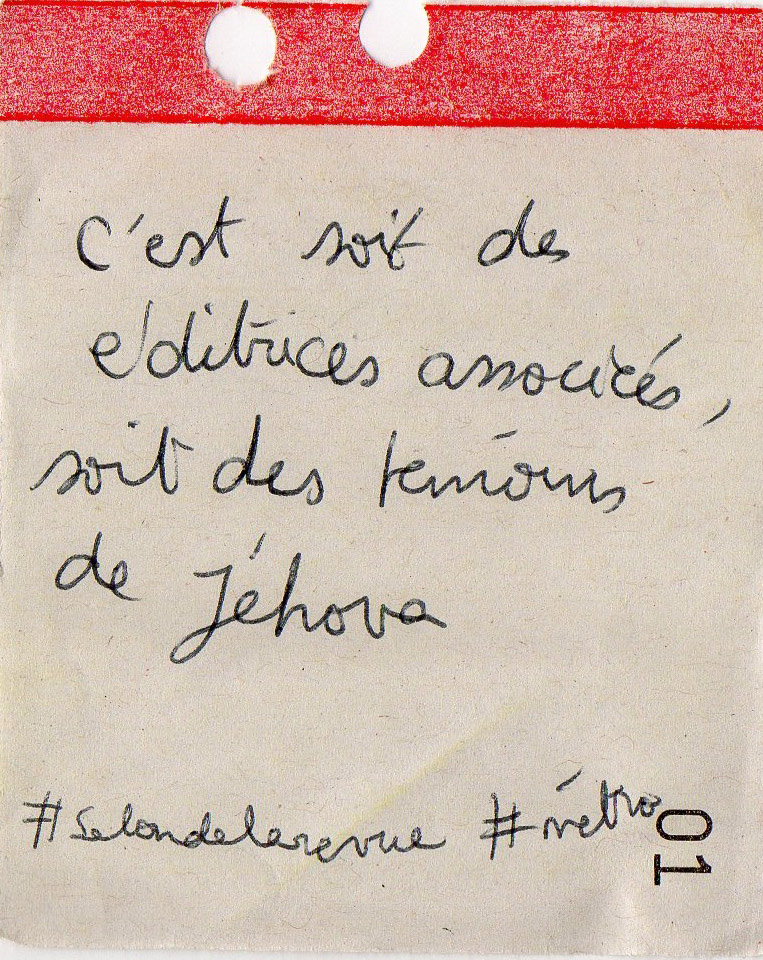 C'est soit des
éditrices associées,
soit des témoins
de Jéhova
#salondelarevue #métro
01